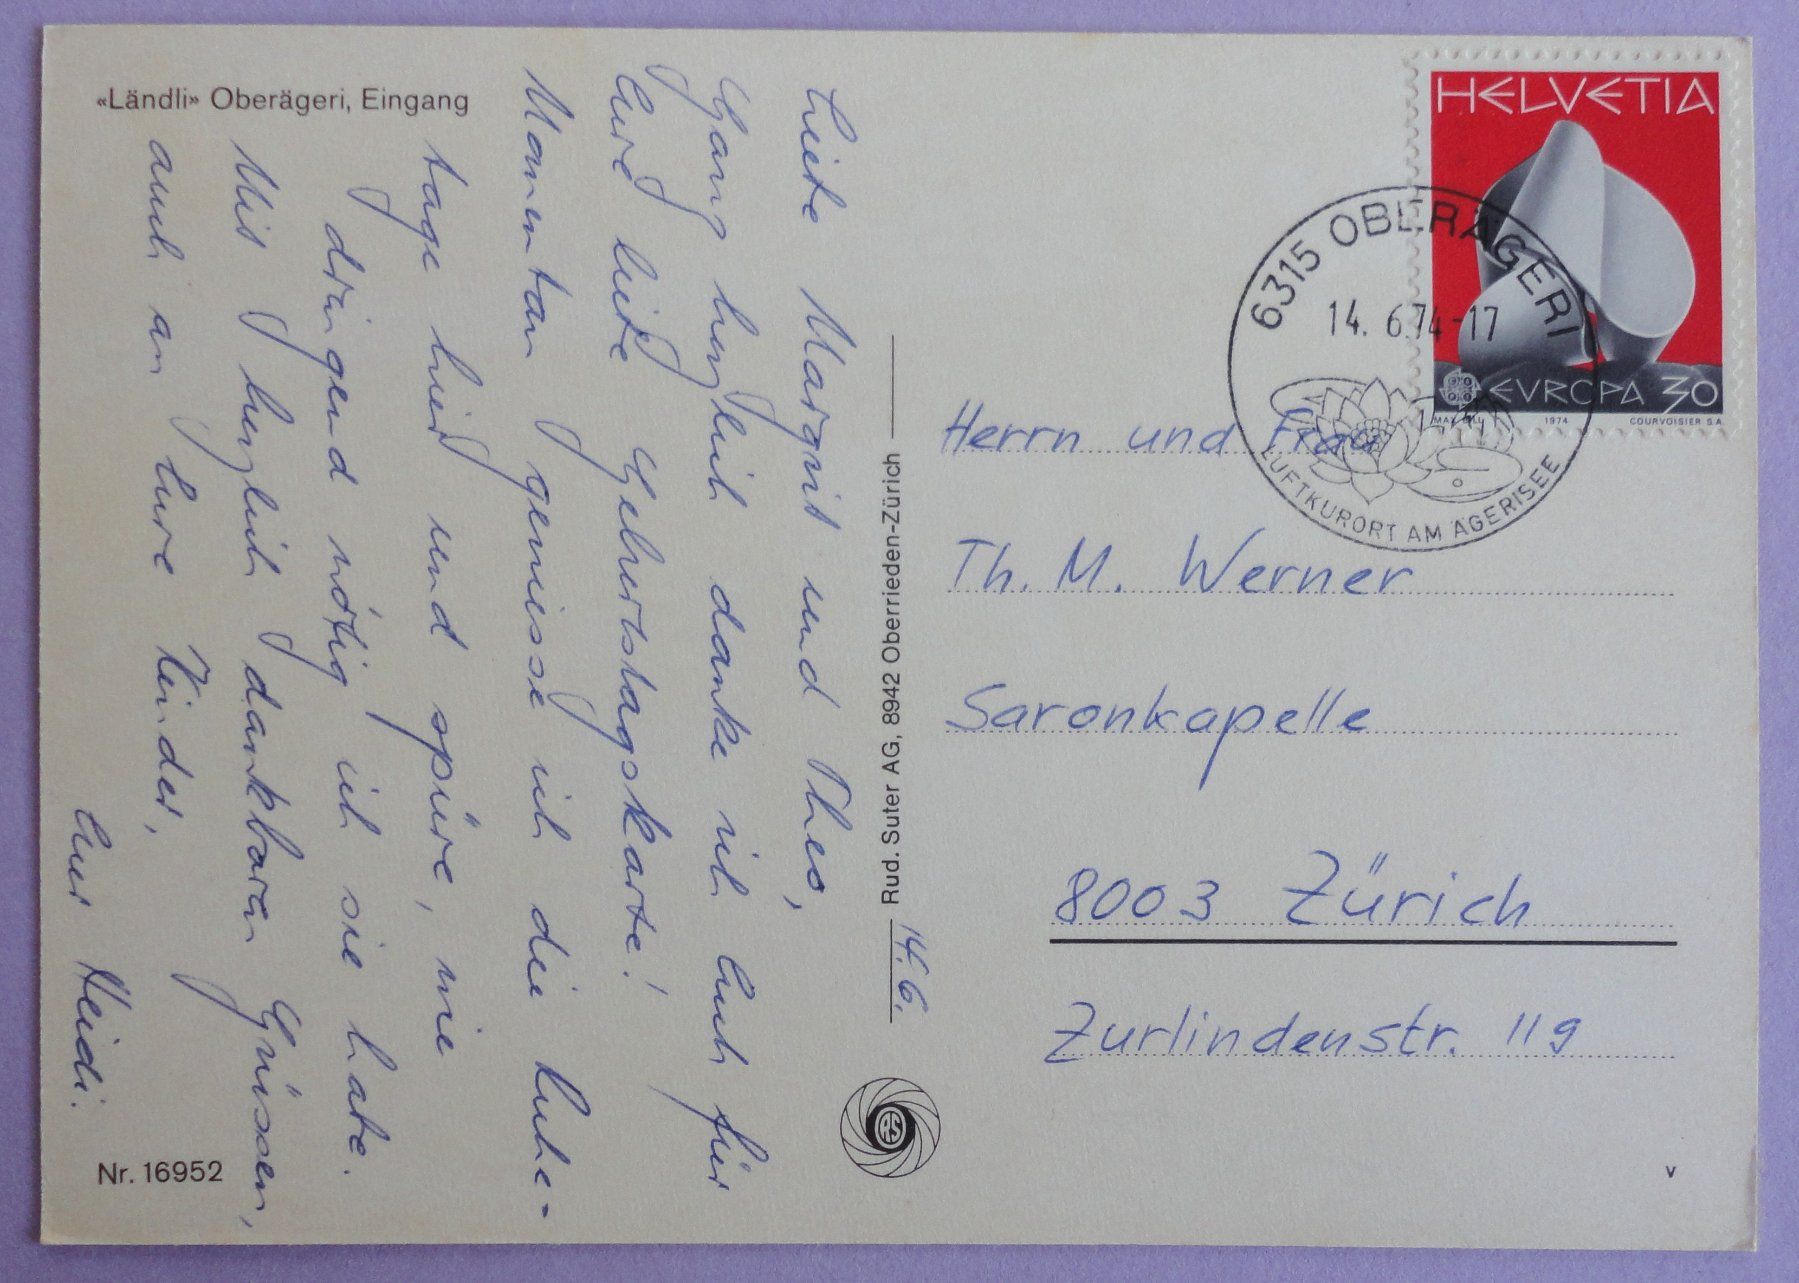 «Ländli» Oberägeri, Eingang
Liebe Margrit und Theo,
Ganz herzlich danke ich Euch für
Eure liebe Geburtstagskarte!
Momentan geniesse ich die Ruhe-
tage hier und spüre, wie
dringend nötig ich sie habe.
Mit herzlich dankbaren Grüssen,
auch an Eure Kinder,
Eure Heidi.
Nr. 16952
Rud. Suter AG, 8942 Oberrieden-Zürich
14.6.
RS
HELVETIA
EVROPA 30
MAX BILL 1974 COURVOISIER S.A.
6315 OBERÄGERI
14. 6.74-17
LUFTKURORT AM ÄGERISEE
Herrn und Frau
Th. M. Werner
Saronkapelle
8003 Zürich
Zurlindenstr. 119
v